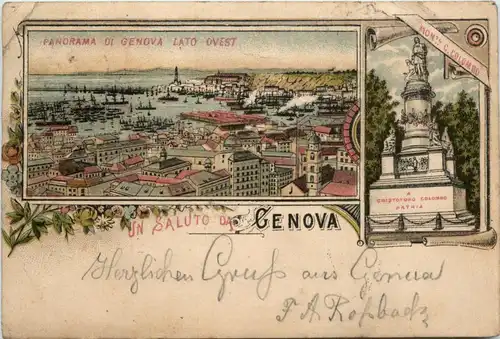 PANORAMA DI GENOVA LATO OVEST
MONTO C. COLOMBO
A
CRISTOFORO COLOMBO
PATRIA
UN SALUTO DA GENOVA
Herzlichen Gruß aus Genua
F A Roßbach